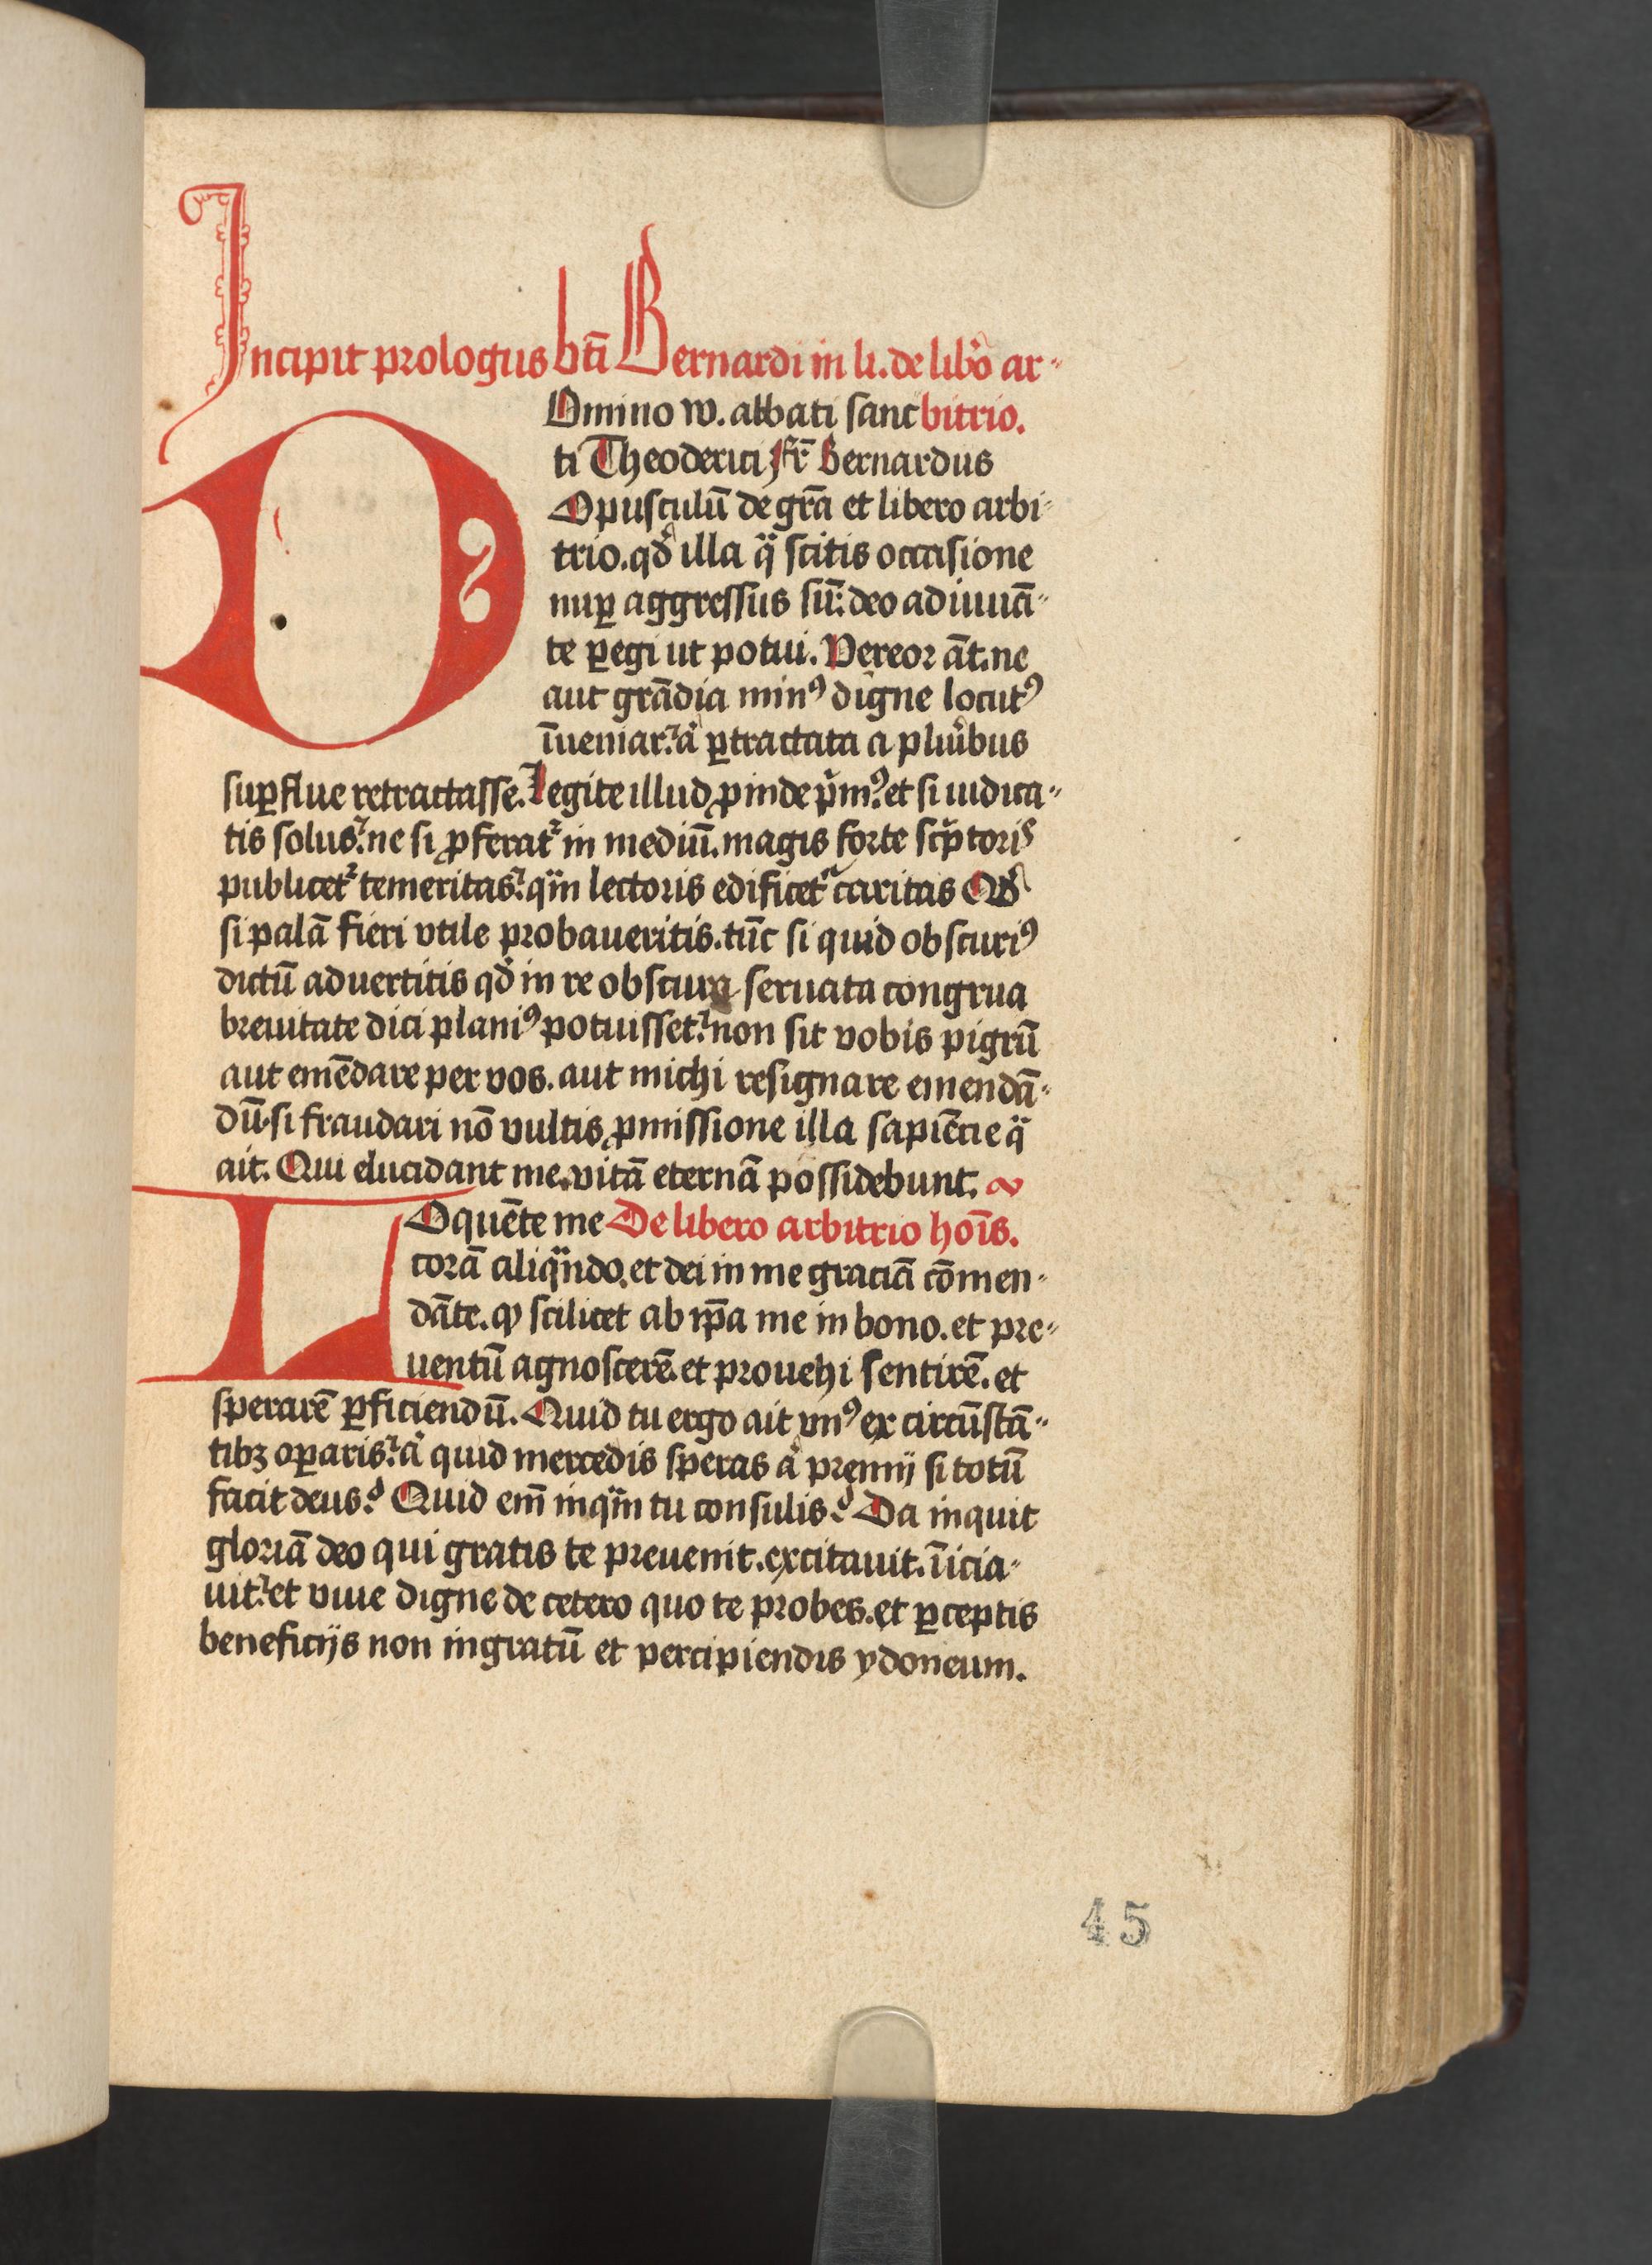 Incipit prologus bti̅ Bernardi in li. de lib̾o ar-
DOmino w. abbati sanc bitrio.
ti Theoderici fr̅ Bernardus
Opusculu̅ de gr̅a et libero arbi-
trio. qđ illa q̈ scitis occasione
nuꝑ aggressus su̅: deo adiuua̅-
te ꝑegi ut potui. Vereor a̅t. ne
aut gra̅dia minꝰ digne locutꝰ
i̅ueniar: a̾ ꝑtractata a plurib̾us
suꝑflue retractasse. Legite illud ꝓinde p̾mꝰ: et si iudica-
tis solus: ne si ꝓferat᷑ in mediu̅. magis forte sc̾ptoris
publicet᷑ temeritas: qᷓm lectoris edificet᷑ caritas Qđ
si pala̅ fieri vtile probaueritis. tu̅c si quid obscuriꝰ
dictu̅ aduertitis qđ in re obscura seruata congrua
breuitate dici planiꝰ potuisset: non sit vobis pigru̅
aut eme̅dare per vos. aut michi resignare emenda̅-
du̅. si fraudari no̅ vultis ꝓmissione illa sapie̅cie q̈
ait. Qui elucidant me. vita̅ eterna̅ possidebunt.
LOque̅te me De libero arbitrio ho̅is.
cora̅ aliqᷓndo. et dei in me gracia̅ co̅men-
da̅te. ꝙ scilicet ab ip̅a me in bono. et pre-
uentu̅ agnoscere̅. et prouehi sentire̅. et
sperare̅ ꝑficiendu̅. Quid tu ergo ait vnꝰ ex circu̅sta̅-
tibꝫ oꝑaris: a̾ quid mercedis speras a̾ premij si totu̅
facit deus? Quid em̅ inqᷓm tu consulis? Da inquit
gloria̅ deo qui gratis te preuenit. excitauit. i̅icia-
uit: et viue digne de cetero quo te probes. et ꝑceptis
beneficijs non ingratu̅ et percipiendis ydoneum.
45